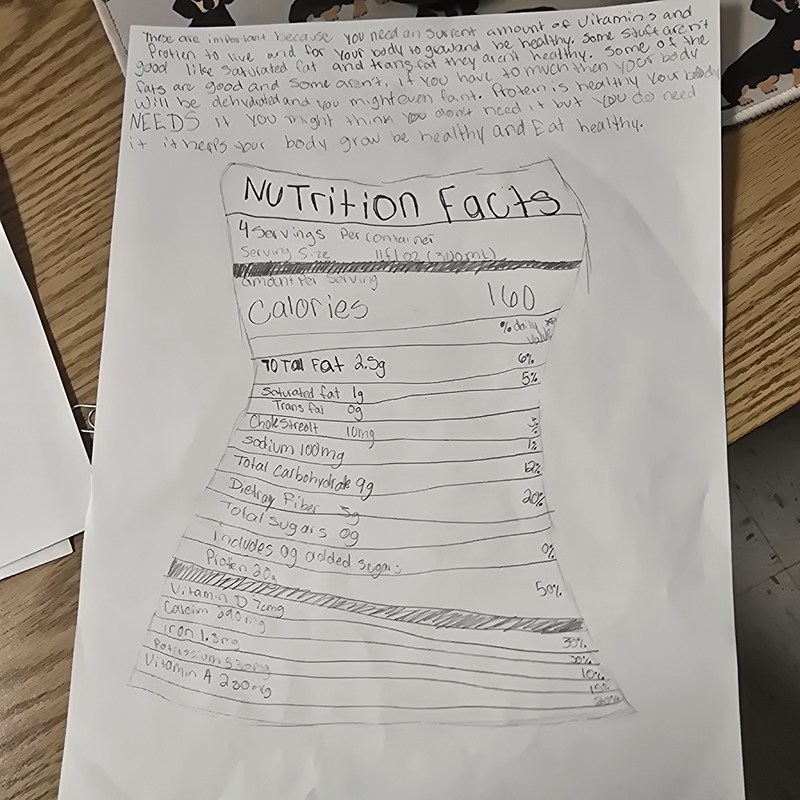 These are important because you need an surrent amount of Vitamins and
Protien to live and for your body to grow and be healthy. Some stuff aren't
good like saturated fat and trans fat they aren't healthy. Some of the
fats are good and some aren't. if you have to much then your body
will be dehydrated and you might even faint. Protein is healthy your body
NEEDS it you might think you don't need it but you do need
it it helps your body grow be healthy and Eat healthy.
NUTrition Facts
4 Servings Per container
Serving Size 11fl oz (330mL)
amount Per Serving
Calories 160
% daily value
TOTall Fat 2.5g 6%
Saturated fat 1g 5%
Trans fat 0g
Cholestreolt 10mg 3%
Sodium 100mg 1%
Total Carbohydrate 9g 12%
Dietray Fiber 5g 20%
Total sugars 0g
Includes 0g added sugars 0%
Protien 30g 50%
Vitamin D 7cmg 35%
Calcium 390mg 30%
iron 1.8mg 10%
Potassium 530mg
Vitamin A 230mg 20%